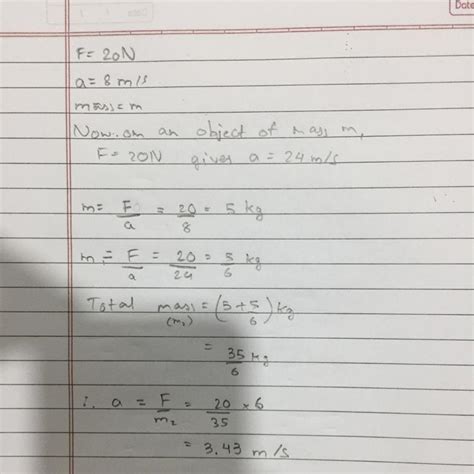 Date
F = 20N
a = 8 m/s
mass = m
Now on an object of mass m,
F = 20N gives a = 24 m/s
m = F/a = 20/8 = 5 kg
m₁ = F/a = 20/24 = 5/6 kg
Total mass (m₂) = (5+5/6) kg
= 35/6 kg
∴ a = F/m₂ = 20/35 × 6
= 3.43 m/s